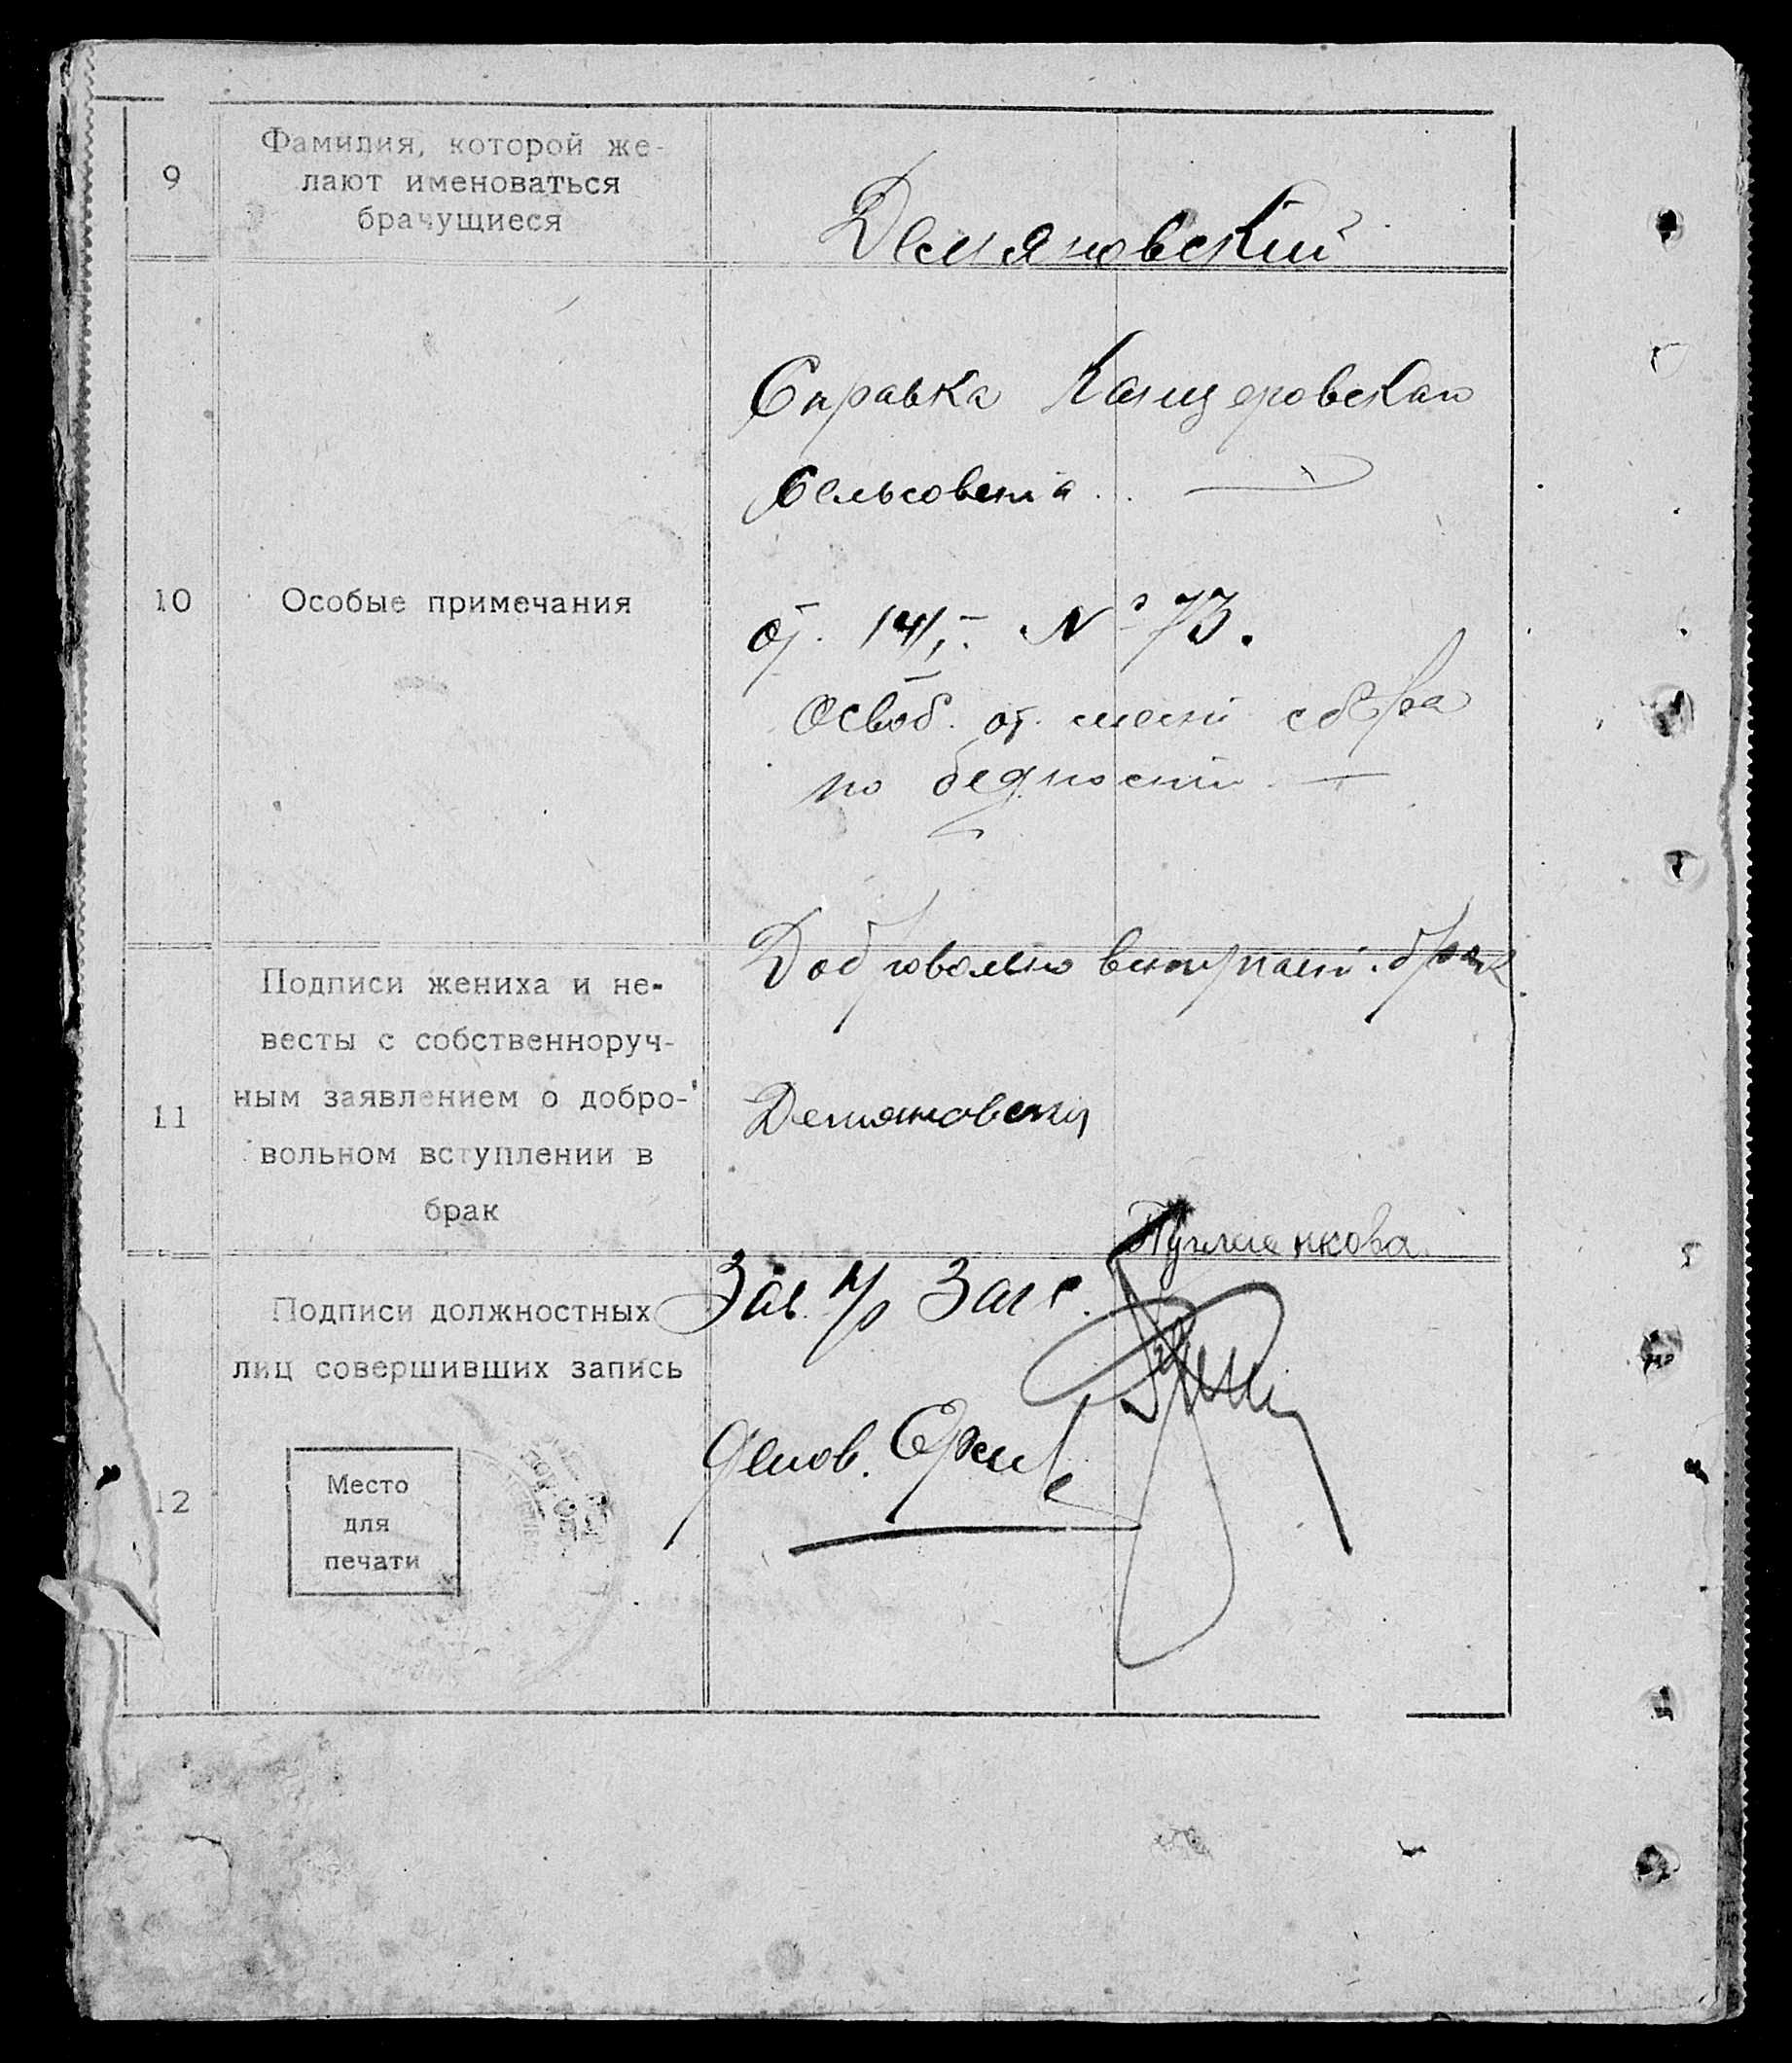 9
Фамилия, которой же-
лают именоваться
брачущиеся
Демяновский
10
Особые примечания
Справка Канцеровскаго
Сельсовета
от. №73.
Освоб. от. мест сбора
по бедности —
11
Подписи жениха и не-
весты с собственноруч-
ным заявлением о добро-
вольном вступлении в
брак
Доброволно вступаем. брак
Демяновский
12
Подписи должностных
лиц совершивших запись
Место
для
печати
Зав. Загс.
Делов.